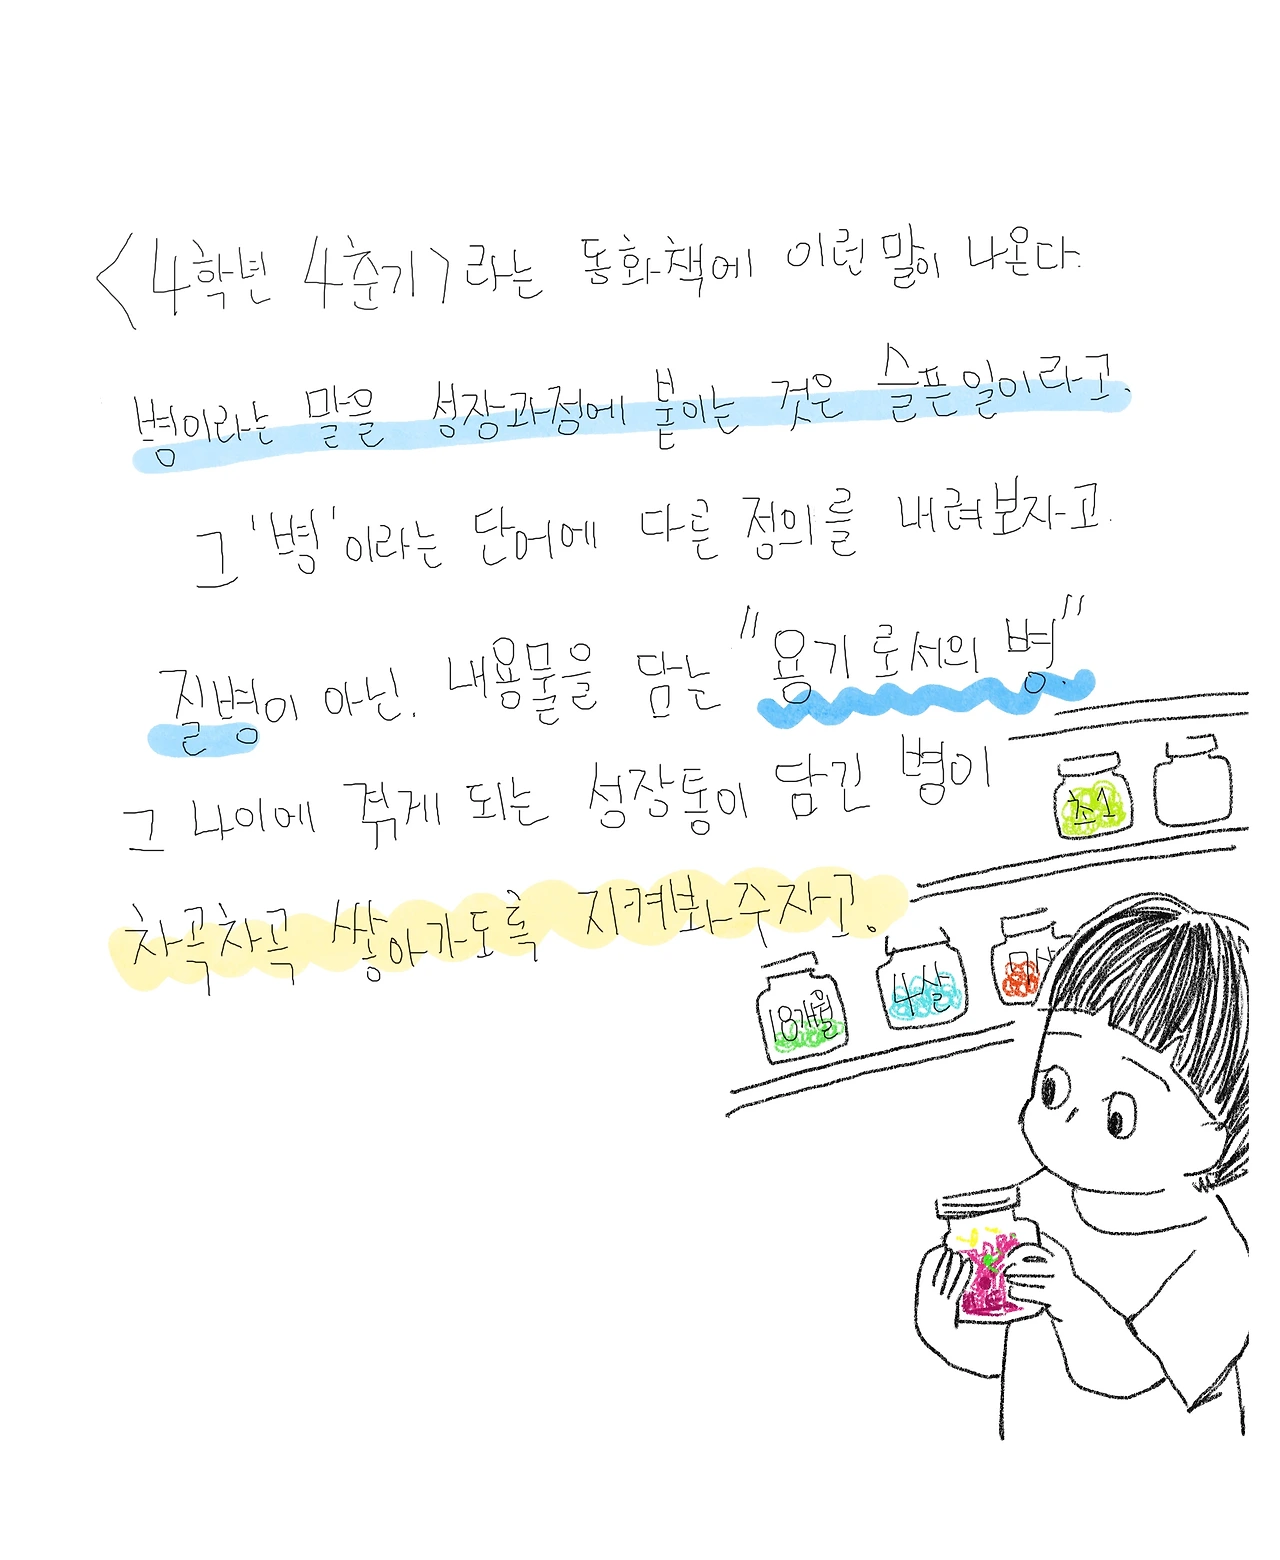 <4학년 4춘기>라는 동화책에 이런 말이 나온다.
병이라는 말을 성장과정에 붙이는 것은 슬픈 일이라고.
그 '병'이라는 단어에 다른 정의를 내려보자고.
질병이 아닌. 내용물을 담는 "용기로서의 병."
그 나이에 겪게 되는 성장통이 담긴 병이
차곡차곡 쌓아가도록 지켜봐주자고.
초1
18개월
4살